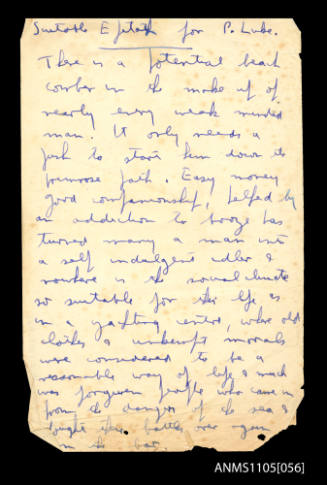 Suitable Epitaph for P. Luke.
There is a potential beach
comber in the make up of
nearly every weak minded
man. It only needs a
push to start him down the
primrose path. Easy money
good companionship, helped by
an addiction to booze has
turned many a man into
a self indulgent idler &
nowhere is the social climate
so suitable for this life as
in a yachting centre, where old
clothes & unkempt morals
were considered to be a
reasonable way of life & much
was forgiven people who came in
from the dangers of the sea &
fought their battles over again
in the bar.
ANMS1105[056]